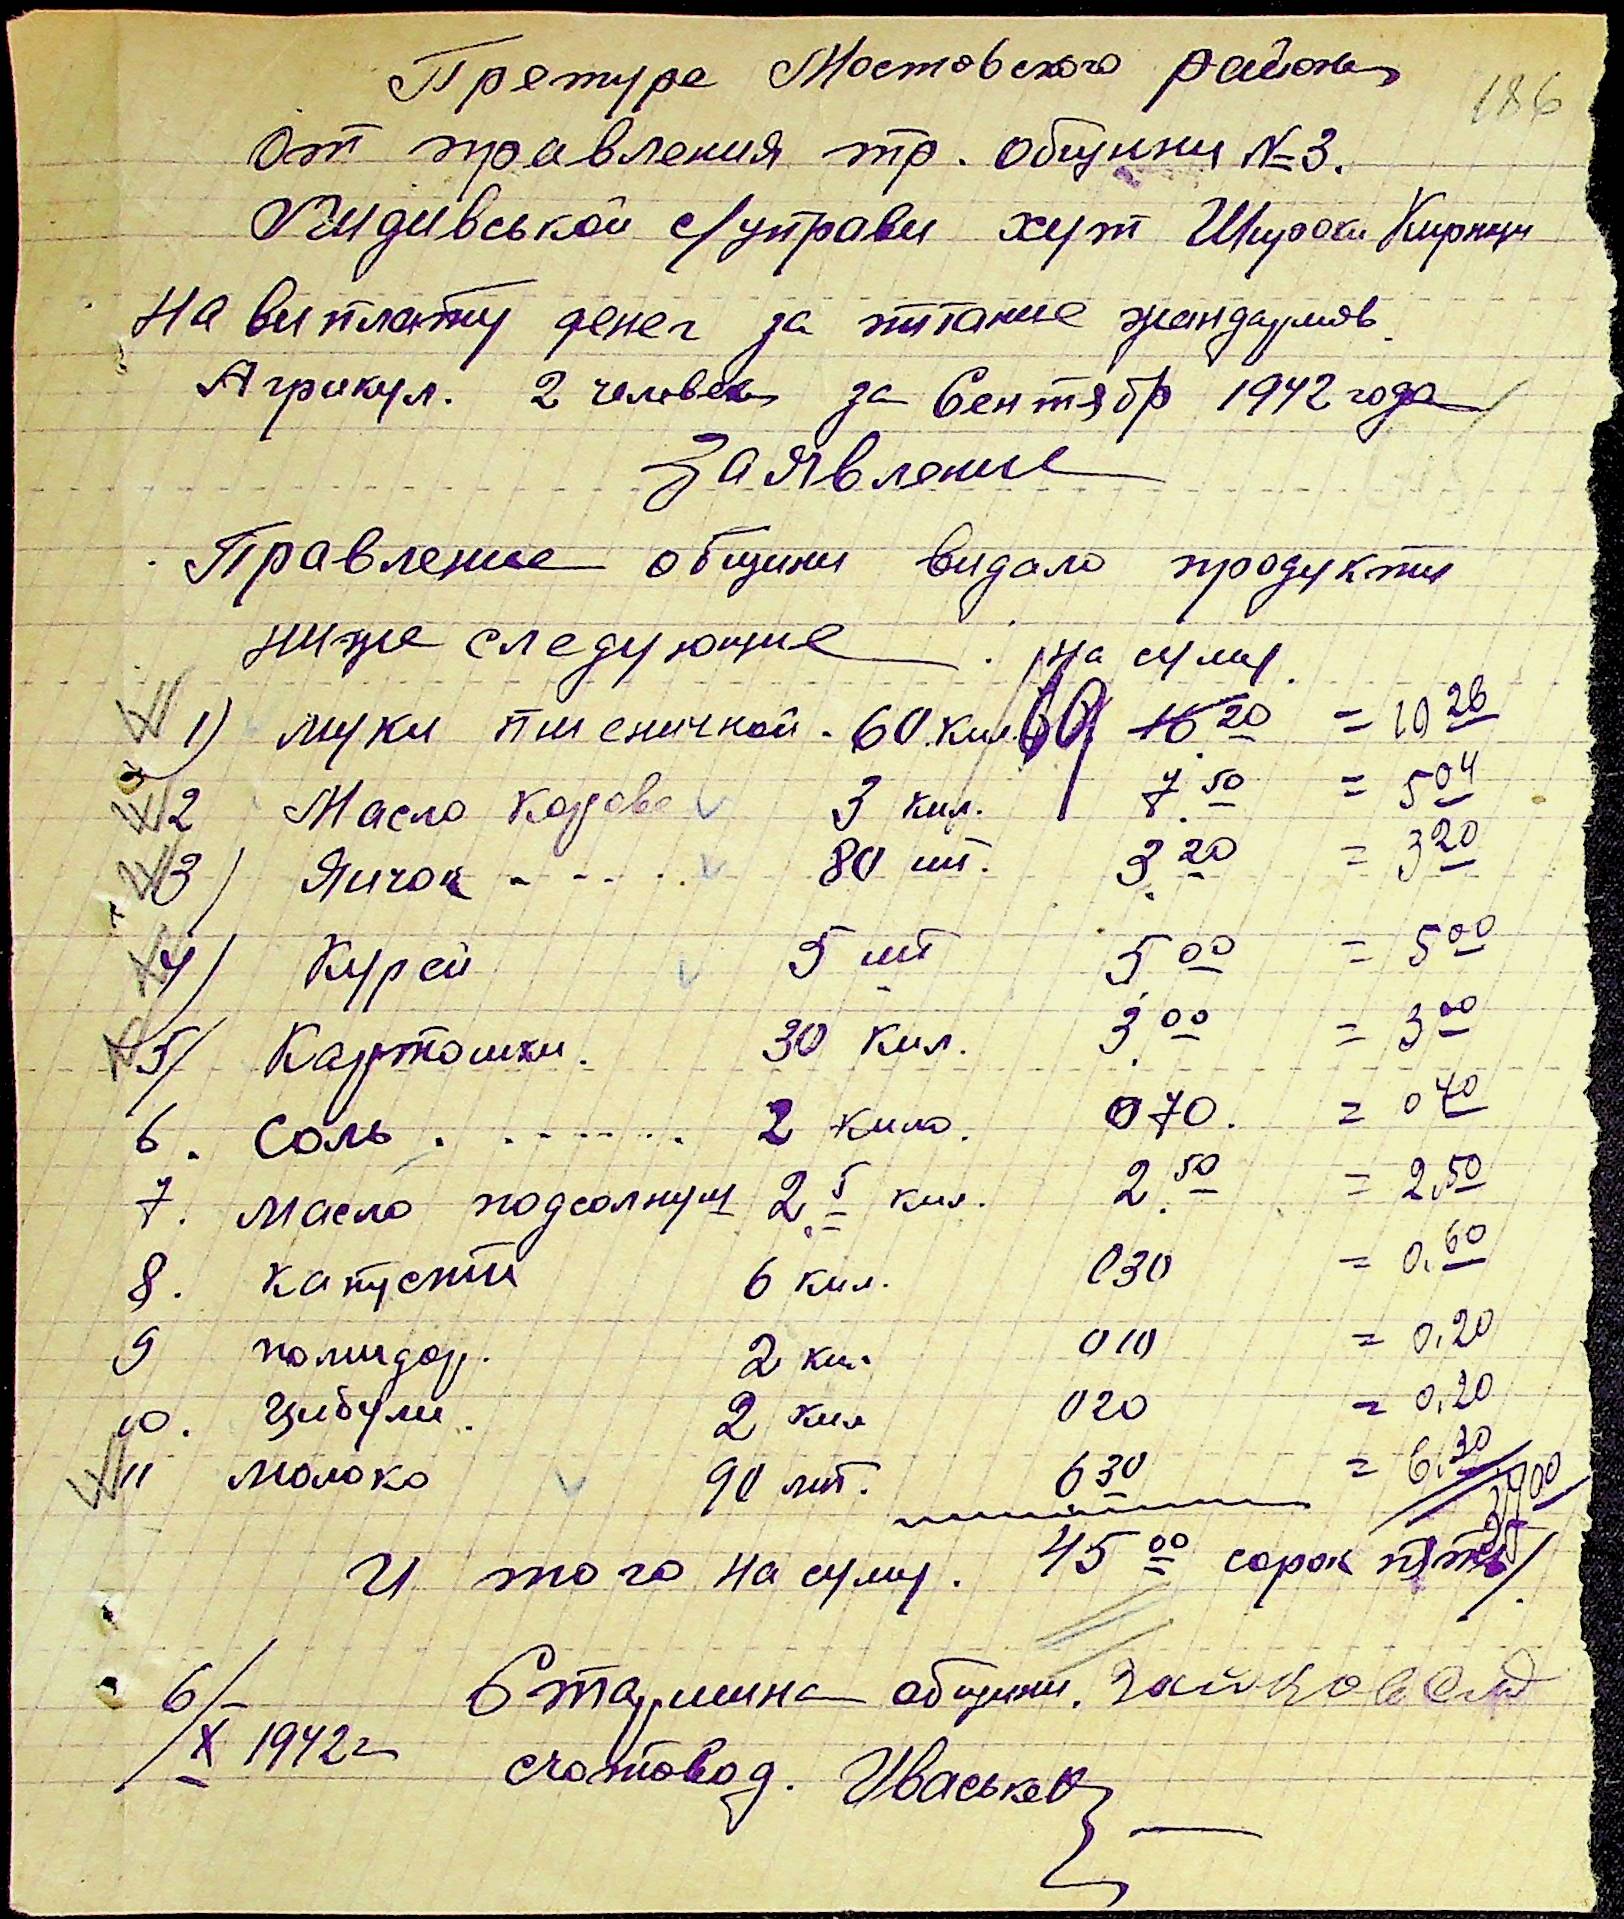 Претуре Мостовского района
186
От правления тр. общини №3.
с/управи хут Широки Кирници
На виплату денег за питание жандармов
Агрикул. 2 человека за Сентябр 1942 года
Заявление
Правление общини видало продукти
ниже следующие на суму.
1) муки пшеничной - 60 кил. 60 16 20 = 10 28
2 Масло корове 3 кил. 7.50 = 5 04
3) Яичок - - - - - 80 шт. 3.20 = 3 20
4) Курей 5 шт 5 00 = 5 00
5/ Картошки. 30 кил. 3.00 = 3 00
6. Соль . - - - - - - 2 кило. 0 70. = 0 40
7. масло подсолнуш 2.5 кил. 2.50 = 2.50
8. капусти 6 кил. 0 30 = 0.60
9 помидор. 2 кил. 0 10 = 0.20
10. Цибули. 2 кил 0 20 = 0.20
11 молоко 90 лит. 6 30 = 6.30
3700
И того на суму. 45 00 сорок пять/.
6/X 1942 г Старшина общини.
счотовод. Иваськов